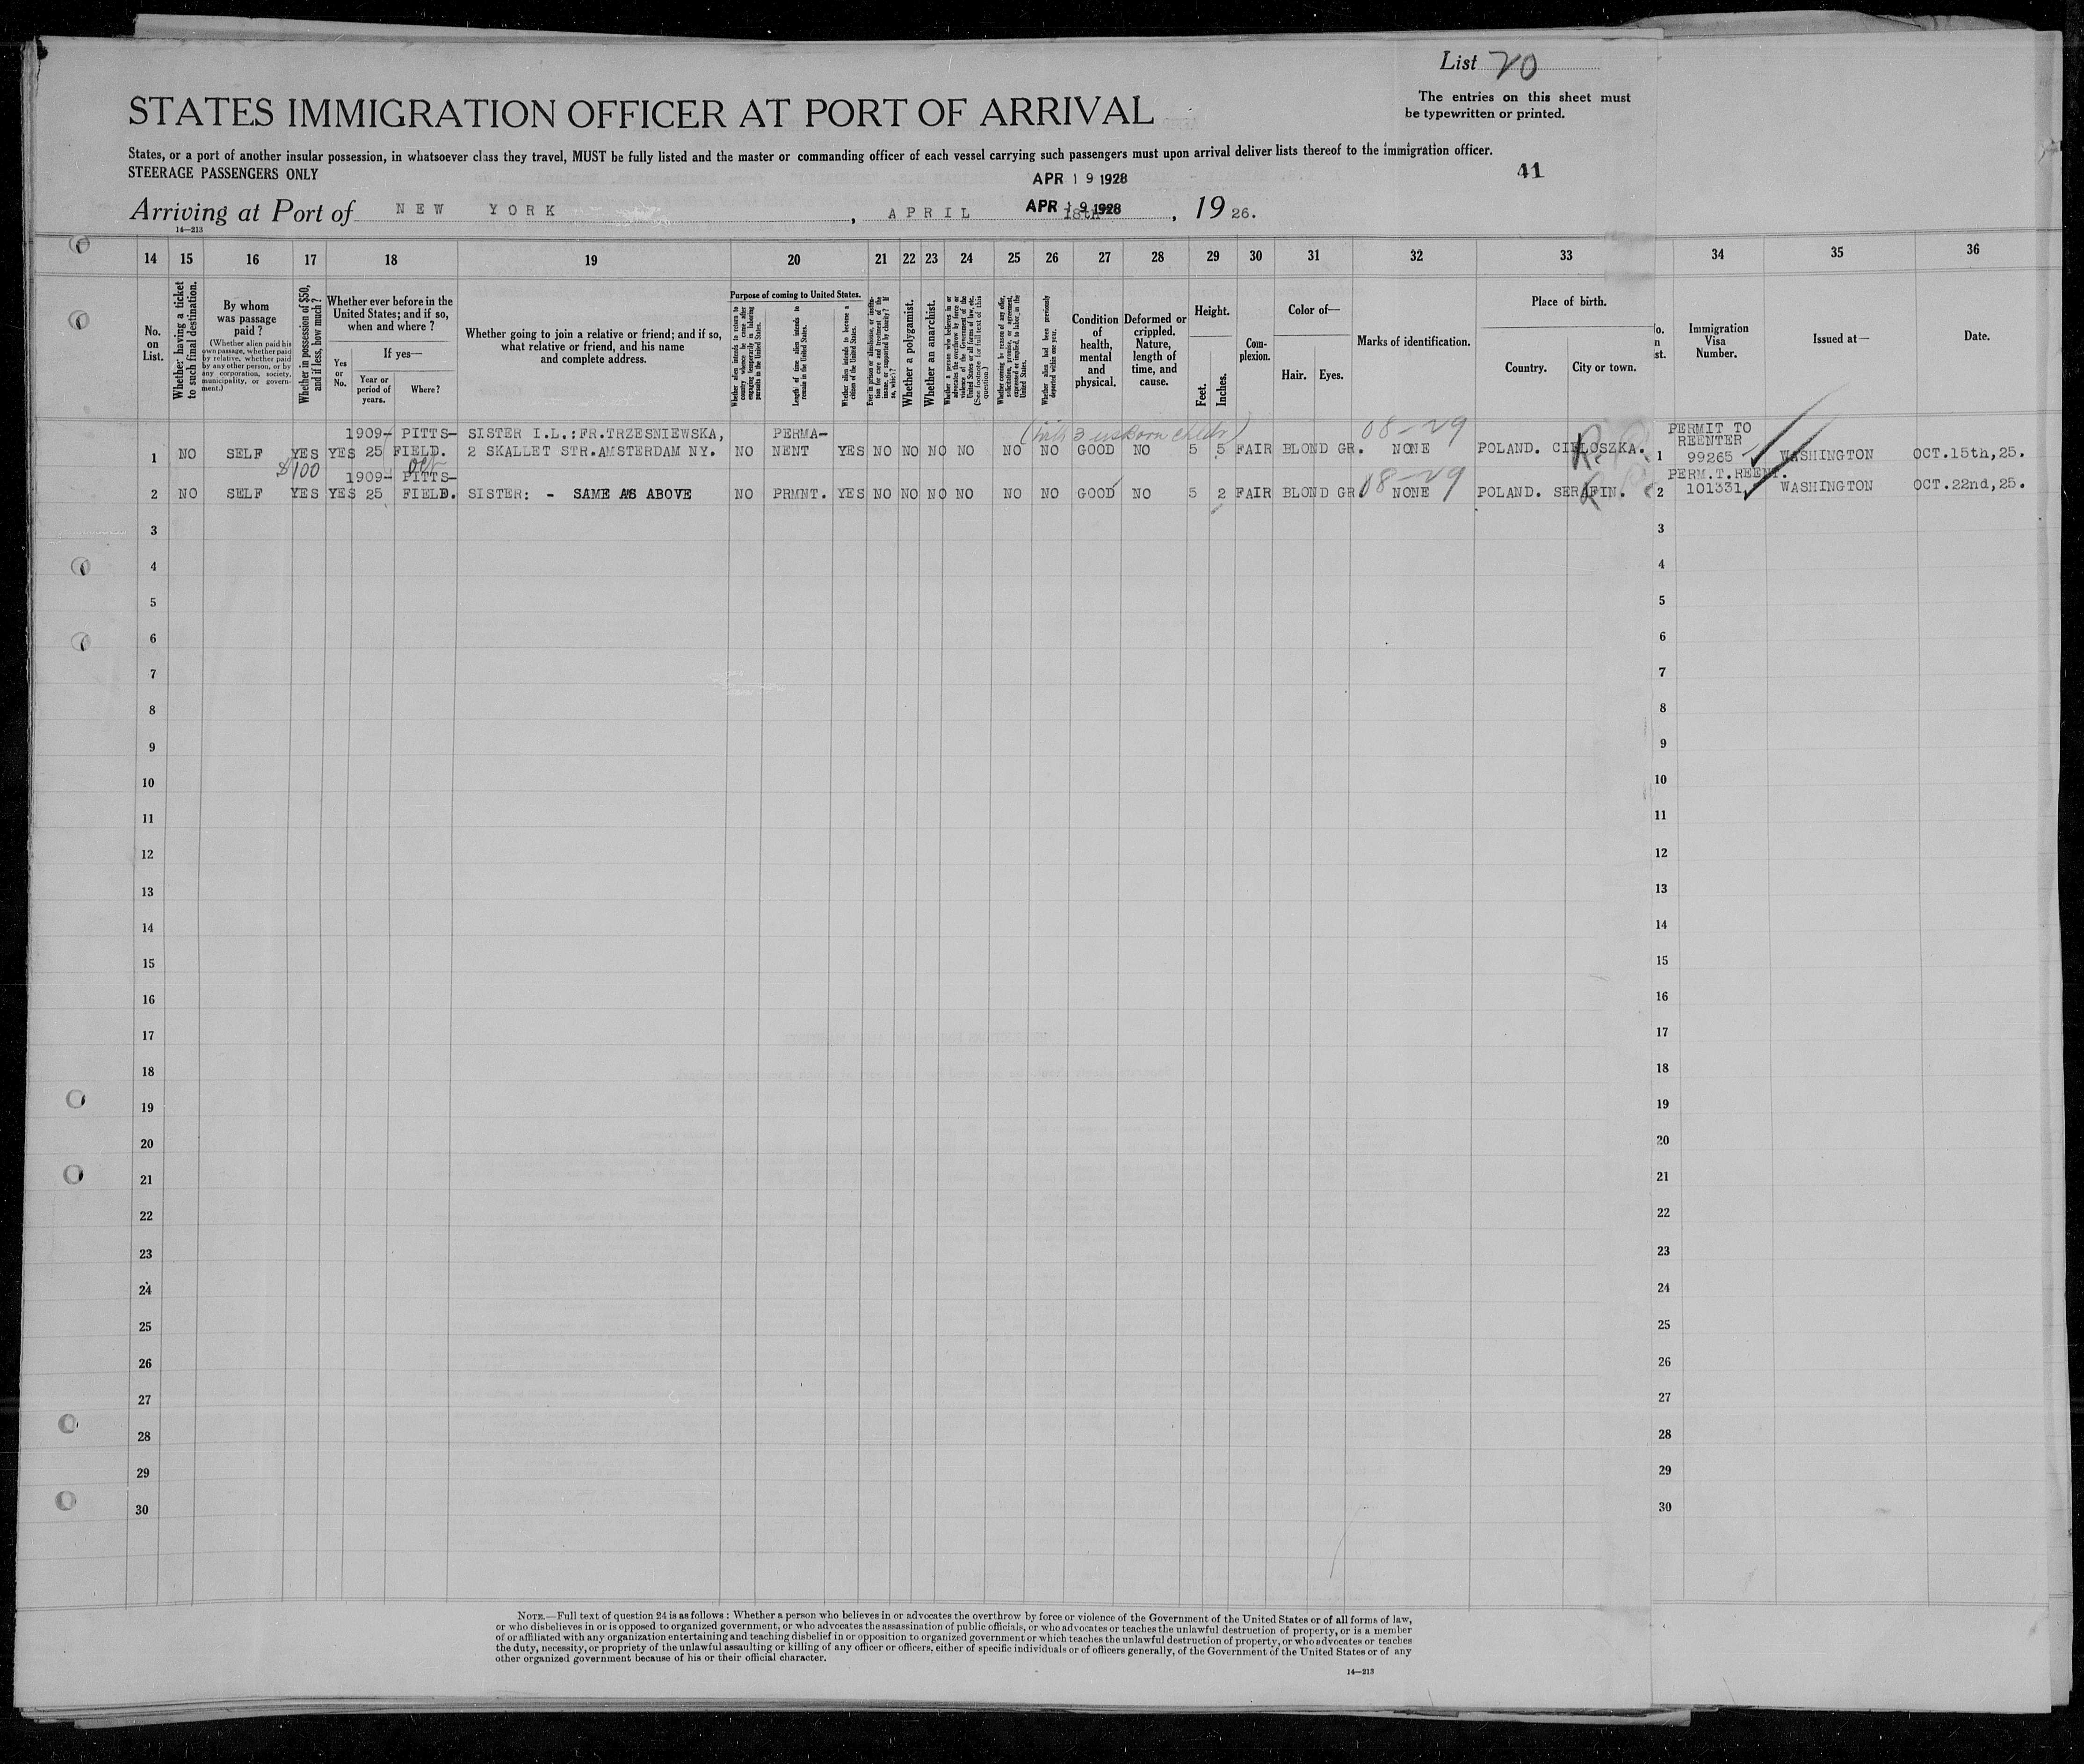 List 20
The entries on this sheet must
be typewritten or printed.
STATES IMMIGRATION OFFICER AT PORT OF ARRIVAL
States, or a port of another insular possession, in whatsoever class they travel, MUST be fully listed and the master or commanding officer of each vessel carrying such passengers must upon arrival deliver lists thereof to the immigration officer.
STEERAGE PASSENGERS ONLY
APR 19 1928
41
Arriving at Port of NEW YORK, APRIL 18th APR 19 1928, 19 26.
14—213
14 15 16 17 18 19 20 21 22 23 24 25 26 27 28 29 30 31 32 33 34 35 36
No. on List.
Whether having a ticket to such final destination.
By whom was passage paid?
(Whether alien paid his own passage, whether paid by relative, whether paid by any other person, or by any corporation, society, municipality, or government.)
Whether in possession of $50, and if less, how much?
Whether ever before in the United States; and if so, when and where?
Yes or No.
If yes—
Year or period of years.
Where?
Whether going to join a relative or friend; and if so, what relative or friend, and his name and complete address.
Purpose of coming to United States.
Whether alien intends to return to country whence he came after engaging temporarily in laboring pursuits in the United States.
Length of time alien intends to remain in the United States.
Whether alien intends to become a citizen of the United States.
Ever in prison or almshouse, or institution for care and treatment of the insane, or supported by charity? If so, which?
Whether a polygamist.
Whether an anarchist.
Whether a person who believes in or advocates the overthrow by force or violence of the Government of the United States or all forms of law, etc. (See footnote for full text of this question.)
Whether coming by reason of any offer, solicitation, promise, or agreement, expressed or implied, to labor in the United States.
Whether alien had been previously deported within one year.
Condition of health, mental and physical.
Deformed or crippled. Nature, length of time, and cause.
Height.
Feet. Inches.
Complexion.
Color of—
Hair. Eyes.
Marks of identification.
Place of birth.
Country. City or town.
Immigration Visa Number.
Issued at—
Date.
1909- PITTS- SISTER I.L.:FR.TRZESNIEWSKA, PERMA- 08-29 PERMIT TO REENTER
1 NO SELF YES YES 25 FIELD. 2 SKALLET STR.AMSTERDAM NY. NO NENT YES NO NO NO NO NO NO GOOD NO 5 5 FAIR BLOND GR. NONE POLAND. 1 99265 WASHINGTON OCT.15th,25.
$100
1909- PITTS- 08-29 PERM.T.REENT.
2 NO SELF YES YES 25 FIELD. SISTER: - SAME AS ABOVE NO PRMNT. YES NO NO NO NO NO NO GOOD NO 5 2 FAIR BLOND GR. NONE POLAND. SERAFIN. 2 101331 WASHINGTON OCT.22nd,25.
3 3
4 4
5 5
6 6
7 7
8 8
9 9
10 10
11 11
12 12
13 13
14 14
15 15
16 16
17 17
18 18
19 19
20 20
21 21
22 22
23 23
24 24
25 25
26 26
27 27
28 28
29 29
30 30
NOTE.—Full text of question 24 is as follows: Whether a person who believes in or advocates the overthrow by force or violence of the Government of the United States or of all forms of law,
or who disbelieves in or is opposed to organized government, or who advocates the assassination of public officials, or who advocates or teaches the unlawful destruction of property, or is a member
of or affiliated with any organization entertaining and teaching disbelief in or opposition to organized government or which teaches the unlawful destruction of property, or who advocates or teaches
the duty, necessity, or propriety of the unlawful assaulting or killing of any officer or officers, either of specific individuals or of officers generally, of the Government of the United States or of any
other organized government because of his or their official character.
14—213